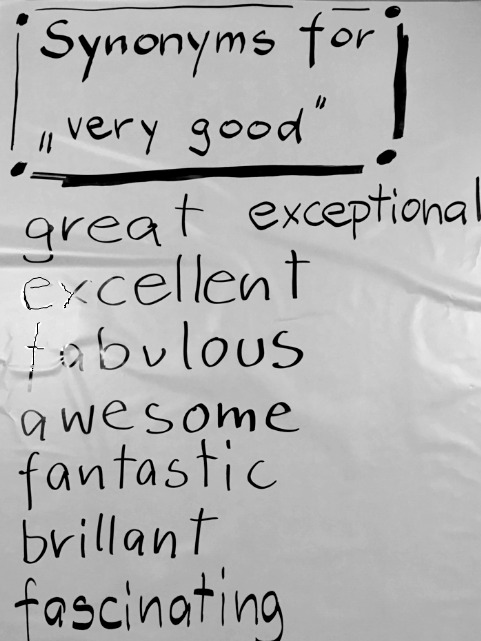 Synonyms for
„very good"
great exceptional
excellent
fabulous
awesome
fantastic
brillant
fascinating